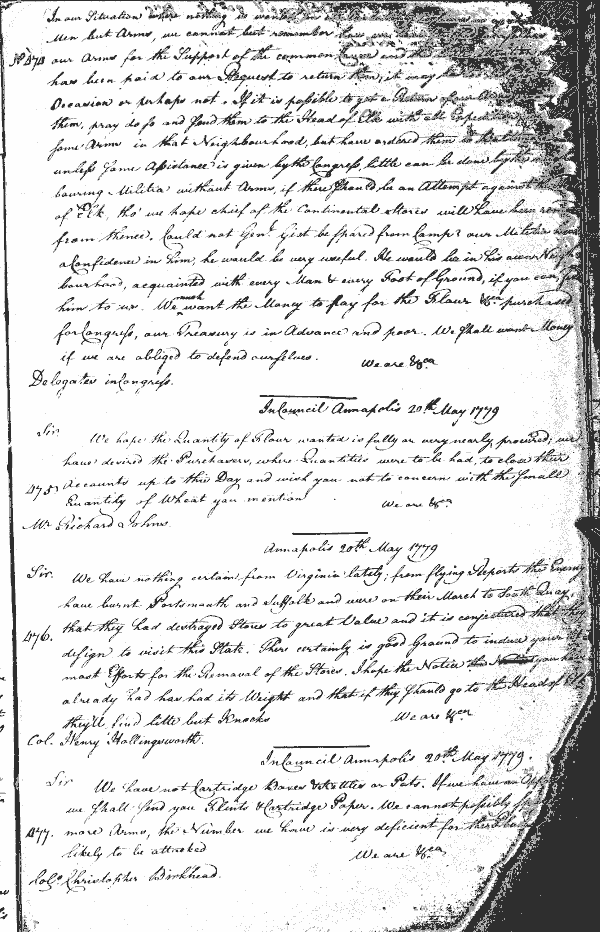 In our Situation where nothing is wanted in
Men but Arms, we cannot but remember
No 474 our Arms for the Support of the common Cause and
has been paid to our Request to return them, it may be
Occasion or perhaps not. If it is possible to get a Return of our Arms
them, pray do so and send them to the Head of Elk with able
some Arms in that Neighbourhood, but have ordered them
unless some Assistance is given by the Congress, little can be done by the
bouring Militia without Arms, if there should be an Attempt against the
of Elk, tho' we hope chief of the Continental Stores will have been
from thence. Could not Genl. Gist be spared from Camp? our Militia
a Confidence in him, he would be very useful. He would be in his own Neigh
bourhood, acquainted with every Man & every Foot of Ground, if you can,
him to us. We much want the Money to pay for the Flour &ca purchased
for Congress, our Treasury is in Advance and poor. We shall want Money
if we are obliged to defend ourselves. We are &ca
Delegates in Congress.
In Council Annapolis 20th May 1779
Sir.
We hope the Quantity of Flour wanted is fully or very nearly procured; we
have desired the Purchasers, where Quantities were to be had, to close their
475 Accounts up to this Day and wish you not to concern with the small
Quantity of Wheat you mention We are &ca
Mr Richard Johns.
Annapolis 20th May 1779
Sir.
We have nothing certain from Virginia lately; from flying Reports the Enemy
have burnt Portsmouth and Suffolk and were on their March to South Quay,
that they had destroyed Stores to great Value and it is conjectured that they
476. design to visit this State. There certainly is good Ground to induce your
most Efforts for the Removal of the Stores. I hope the Notice you have
already had has had its Weight and that if they should go to the Head of Elk
they'll find little but Knocks We are &ca
Col. Henry Hollingsworth.
In Council Annapolis 20th May 1779.
Sir
We have not Cartridge Boxes & Kettles or Pots. If we have an
we shall send you Flints & Cartridge Paper. We cannot possibly
477. more Arms, the Number we have is very deficient for the
likely to be attacked We are &ca
Colo. Christopher Birkhead.